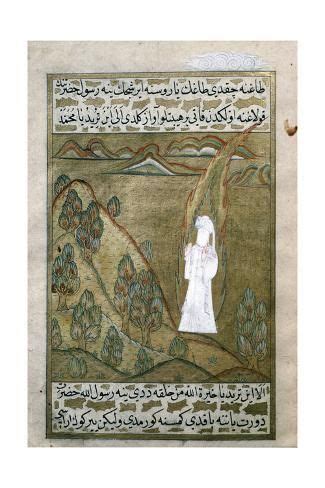 طاغنه چقدی طاغك یاروسنه ایرشجك ینه رسول حضرتنك
قولاغنه اولكدن قاتی برهیبتلو آواز كلدی الی این ترید یا محمد
الا این ترید یا خیرة الله من خلقه ددی ینه رسول الله حضرت
دورت یاننه باقدی كمسنه كورمدی ولیكن ییر كوك اراسی